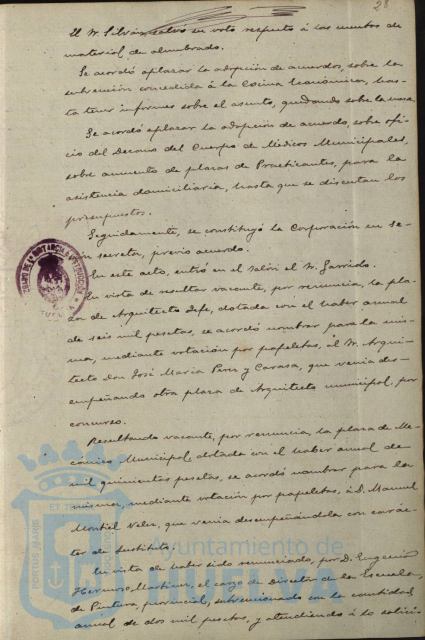 28
El Sr. Silván salvó su voto respecto á las cuentas de
material de alumbrado.
Se acordó aplazar la adopción de acuerdos, sobre la
subvención concedida á la Cocina Económica, has-
ta tener informes sobre el asunto, quedando sobre la mesa.
Se acordó aplazar la adopción de acuerdo, sobre ofi-
cio del Decano del Cuerpo de Médicos Municipales,
sobre aumento de plazas de Practicantes, para la
asistencia domiciliaria, hasta que se discutan los
presupuestos.
Seguidamente, se constituyó la Corporación en se-
sión secreta, previo acuerdo.
En este acto, entró en el Salón el Sr. Garrido.
En vista de resultar vacante, por renuncia, la pla-
za de Arquitecto Jefe, dotada con el haber anual
de seis mil pesetas, se acordó nombrar para la mis-
ma, mediante votación por papeletas, al Sr. Arqui-
tecto don José María Pérez y Carasa, que venía des-
empeñando otra plaza de Arquitecto municipal, por
concurso.
Resultando vacante, por renuncia, la plaza de Me-
cánico Municipal, dotada con el haber anual de
mil quinientas pesetas, se acordó nombrar para la
misma, mediante votación por papeletas, á D. Manuel
Montiel Velez, que venía desempeñándola con carác-
ter de sustituto.
En vista de haber sido renunciado, por D. Eugenio
Hermoso Martinez, el cargo de Director de la Escuela
de Pintura, provincial, subvencionado con la cantidad
anual de dos mil pesetas, y atendiendo á lo solici-
Ayuntamiento de